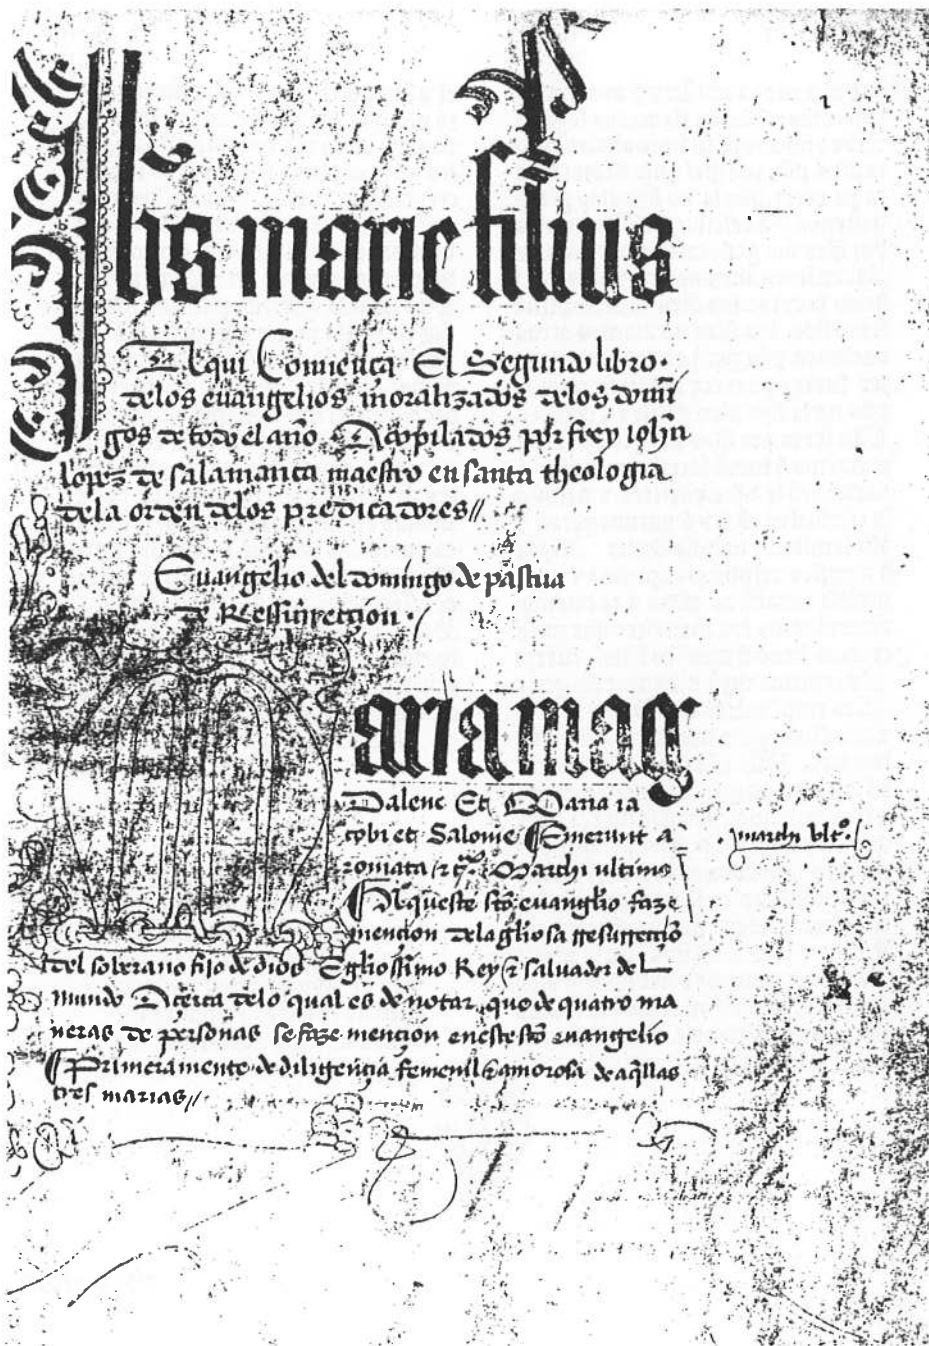 Jhs marie filius
Aqui Comiença El Segundo libro.
delos euangelios moralizados delos domī
gos de todo el año Acopilados por frey iohn
lopez de salamanca maestro en santa theologia
dela orden delos predicadores//
Euangelio del domingo de pascua
de Ressurrecçion.
Maria mag
Dalene Et Maria ia
cobi et Salome Emerunt a
romata Marchi ultimo
Aqueste sc̄o euanglio faze
mencion dela gl̄iosa rresurrecciō
del soberano fijo de dios E gl̄iossimo Rey saluador del
mundo Açerca delo qual es de notar que de quatro ma
neras de personas se faze mencion en este sc̄o euangelio
Primeramente de diligençia femenil amorosa de aq̄llas
tres marias//
.marchi vltº.